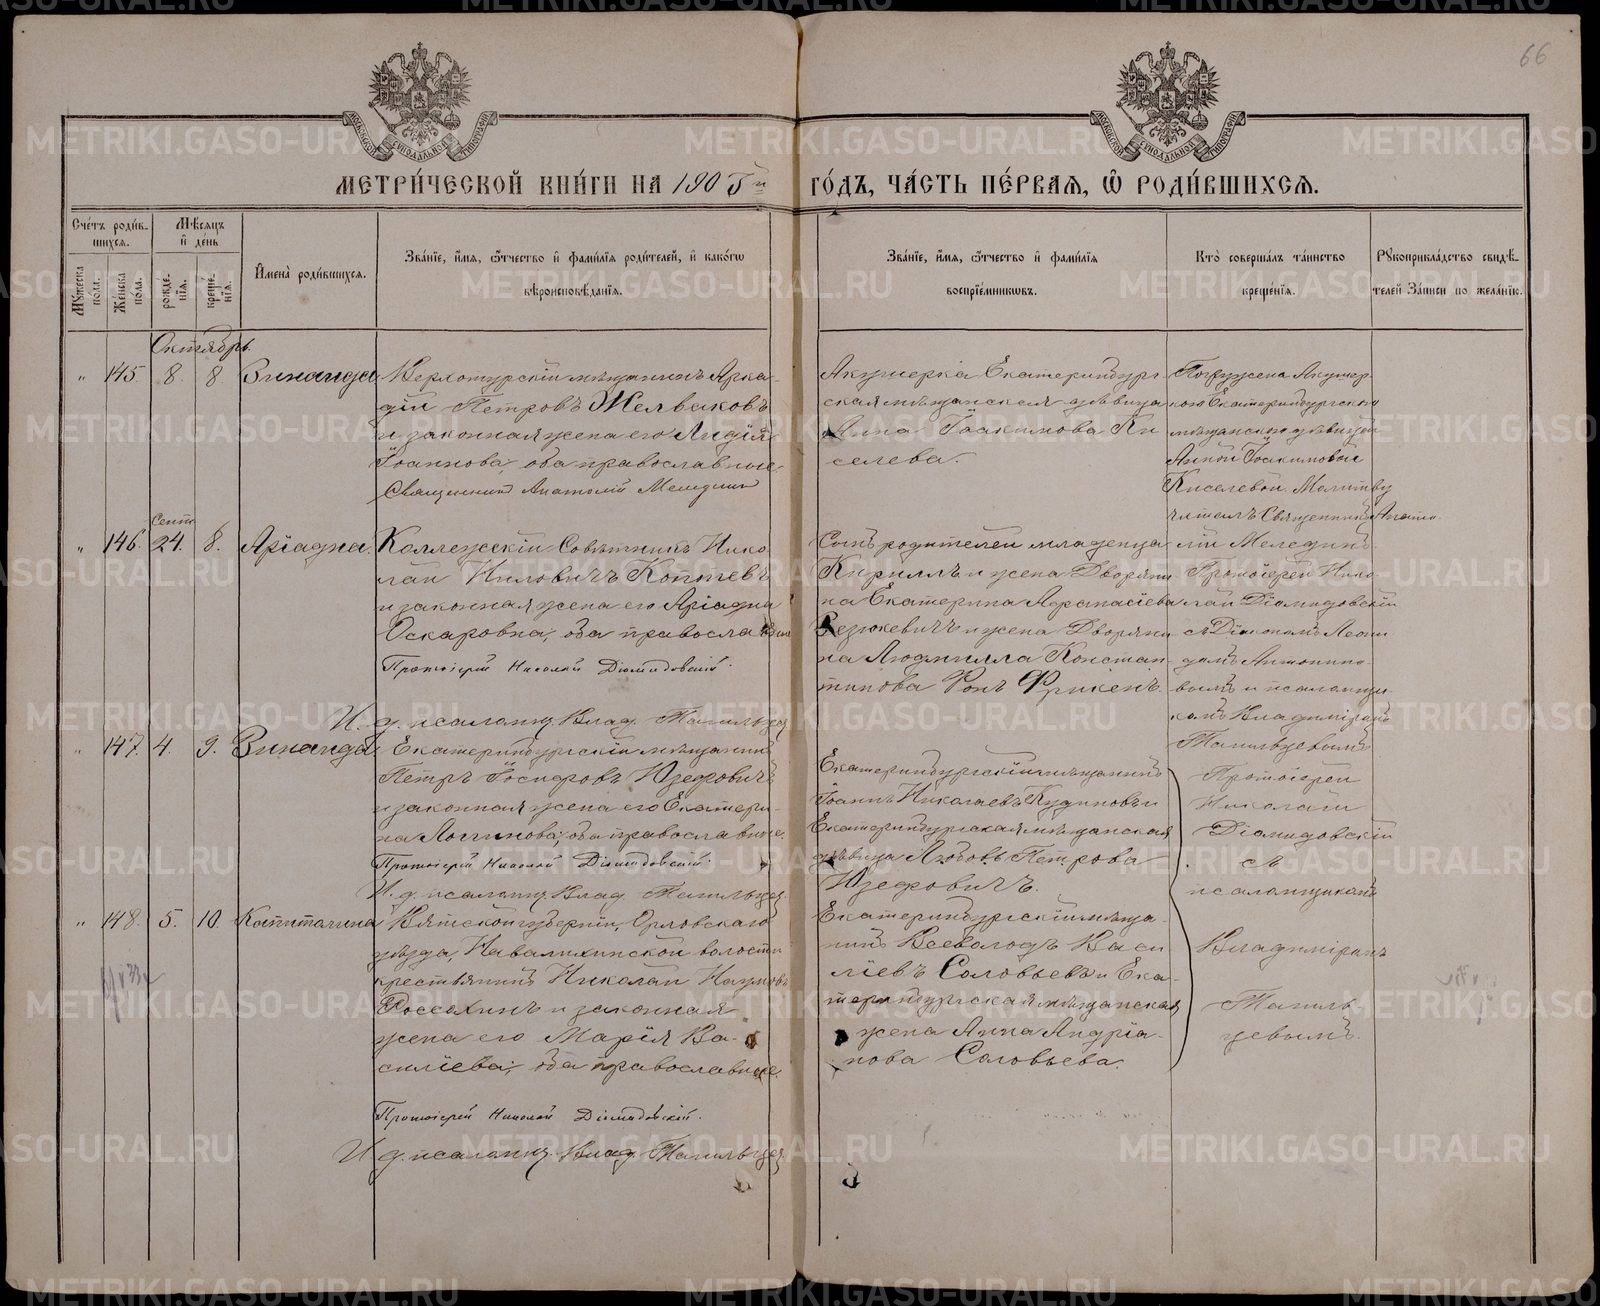 66
МОСКОВСКОЙ СѴНОДАЛЬНОЙ ТИПОГРАФІИ
МОСКОВСКОЙ СѴНОДАЛЬНОЙ ТИПОГРАФІИ
МЕТРИ́ЧЕСКОЙ КНИ́ГИ НА 1905й ГО́ДЪ, ЧА́СТЬ ПЕ́РВАЯ, Ѡ РОДИ́ВШИХСЯ.
Сче́тъ роди́в-
шихся.
Мѣ́сяцъ
и҆ де́нь
Му́жеска по́ла.
Же́нска по́ла.
рожде́-нїя.
креще́-нїя.
И҆мена̀ роди́вшихся.
Зва́нїе, и҆́мя, ѻ҆́тчество и҆ фами́лїя роди́телей, и҆ како́гѡ
вѣроисповѣ́данїя.
Зва́нїе, и҆́мя, ѻ҆́тчество и҆ фами́лїя
воспрїе́мникѡвъ.
Кто̀ соверша́лъ та́инство
креще́нїя.
Рꙋкоприкла́дство свидѣ́-
телей за́писи по жела́нїю.
Октябрь.
" 145. 8. 8. Зинаида
Верхотурскій мѣщанинъ Арка-
дій Петровъ Желваковъ
и законная жена его Лидія
Іоаннова, оба православные
Священникъ Анатолій Меледин
Акушерка Екатеринбург-
ская мѣщанская дѣвица
Анна Іоакимова Ки
селева.
Погружена Акушер-
кою Екатеринбургскою
мѣщанскою дѣвицей
Анной Іоакимовой
Киселевой. Молитву
читалъ Священникъ Анато-
лій Меледин.
Сент.
" 146. 24. 8. Аріадна.
Коллежскій Совѣтникъ Нико-
лай Ниловичъ Коптевъ
и законная жена его Аріадна
Оскаровна, оба православные
Протоіерей Николай Діомидовскій.
И. д. псаломщ. Влад. Тагильцев
Сынъ родителей младенца
Кириллъ и жена Дворяни
на Екатерина Афанасіева
Резюкевичъ и жена Дворяни
на Людмилла Констан-
тинова Фонъ Фрикенъ
Протоіерей Нико-
лай Діомидовскій
съ Діакономъ Леони
домъ Антонино-
вымъ и псаломщи-
комъ Владиміромъ
Тагильцевымъ
" 147. 4. 9. Зинаида
Екатеринбургскій мѣщанинъ
Петръ Іосифовъ Юзефовичъ
и законная жена его Екатери-
на Логинова, оба православные
Протоіерей Николай Діомидовскій.
И. д. псаломщ. Влад. Тагильцев
Екатеринбургскій мѣщанинъ
Іоаннъ Николаевъ Кудиновъ и
Екатеринбургская мѣщанская
дѣвица Любовь Петрова
Юзефовичъ.
Протоіерей
Николай
Діомидовскій
съ
псаломщикомъ
Владиміромъ
Тагиль-
цевымъ.
" 148. 5. 10. Капитолина
Вятской губерніи, Орловскаго
уѣзда, Навалихинской волости
крестьянинъ Николай Наумовъ
Россохинъ и законная
жена его Марія Ва-
силіева, оба православные.
Протоіерей Николай Діомидовскій.
И. д. псаломщ. Влад. Тагильцев
Екатеринбургскій мѣща-
нинъ Всеволодъ Васи
ліевъ Соловьевъ и Ека-
теринбургская мѣщанская
жена Анна Андріа-
нова Соловьева.
METRIKI.GASO-URAL.RU